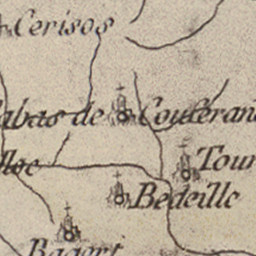 Cerisos
Cabas de Couserans
Tour
Bedeille
Bagert